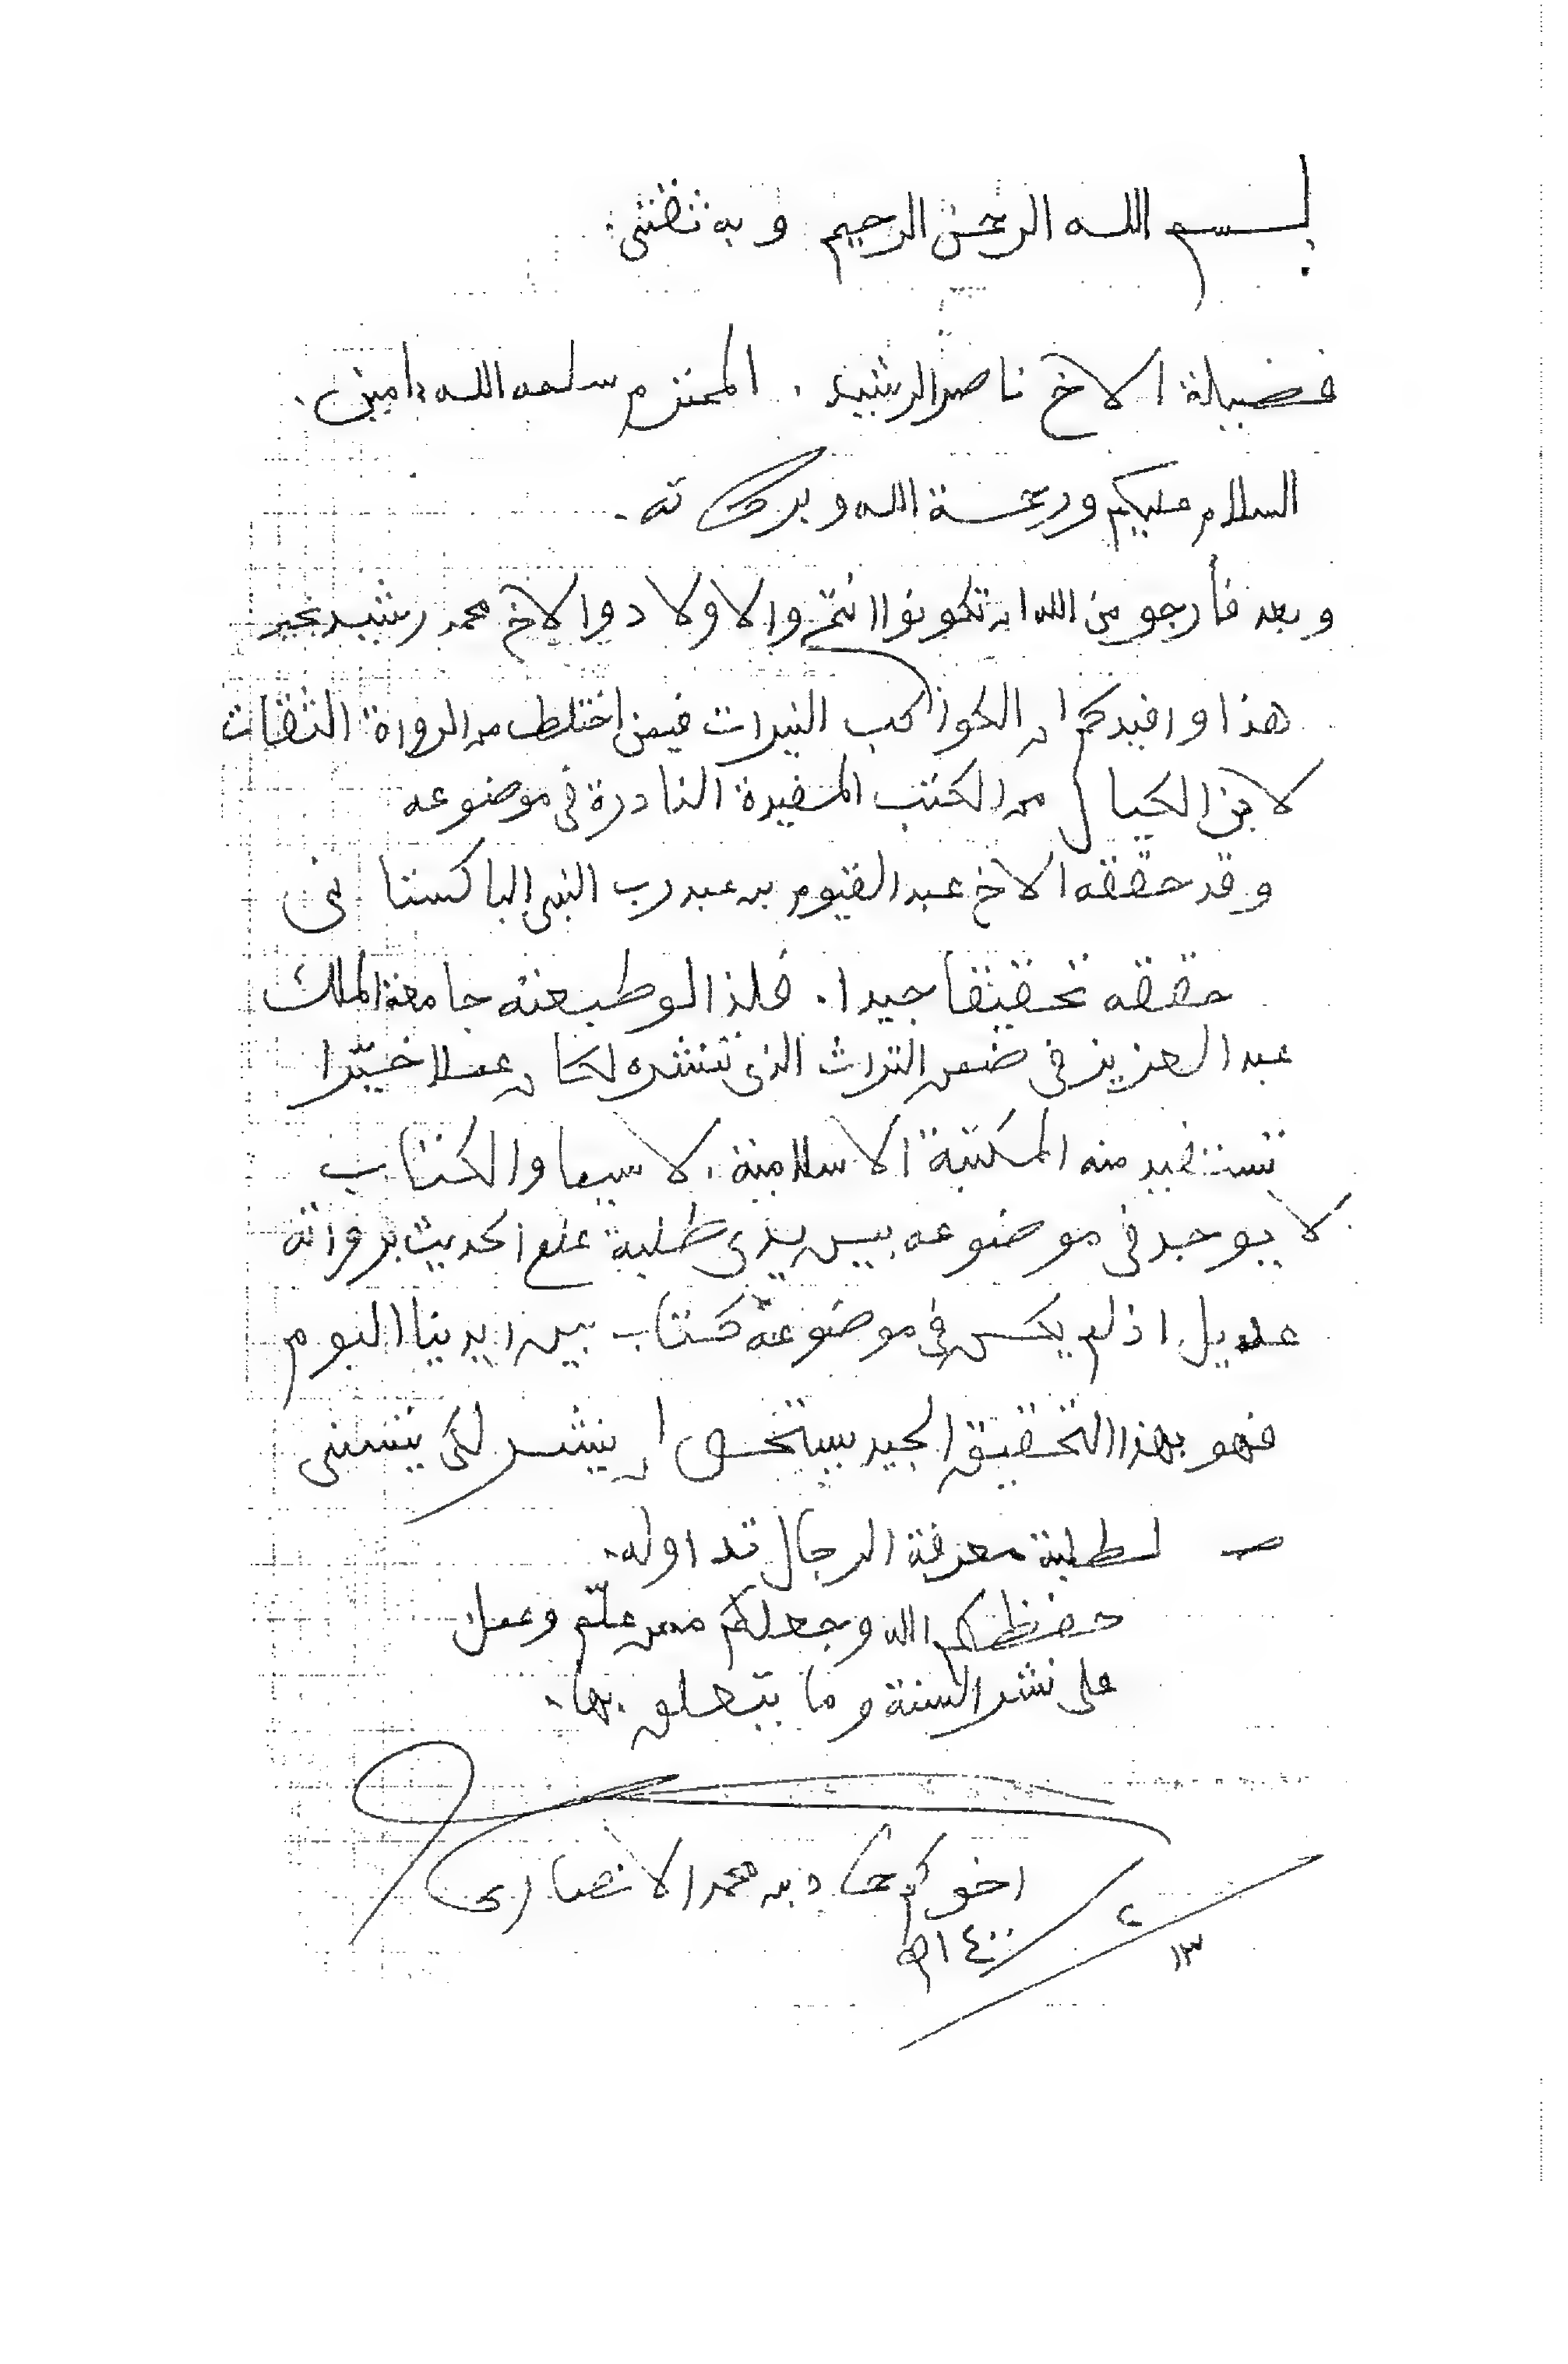 بسم الله الرحمن الرحيم وبه ثقتي.
فضيلة الاخ ناصر الرشيد . المحترم سلمه الله ءامين .
السلام عليكم ورحمة الله وبركاته .
وبعد فأرجو من الله ان تكونوا انتم والاولاد والاخ محمد رشيد بخير
هذا وافيدكم ان الكواكب النيرات فيمن اختلط من الرواة الثقات
لابن الكيال من الكتب المفيدة النادرة في موضوعه
وقد حققه الاخ عبد القيوم بن عبد رب النبي الباكستاني
حققه تحقيقا جيدا . فلذا لو طبعته جامعة الملك
عبد العزيز في ضمن التراث الذي تنشره لكان عملا خيّرا
تستفيد منه المكتبة الاسلامية ، لا سيما والكتاب
لا يوجد في موضوعه بين يدي طلبة علم الحديث برواته
عديل اذ لم يكن في موضوعه كتاب بين ايدينا اليوم
فهو بهذا التحقيق الجيد يستحق ان ينشر لكي يتسنى
لطلبة معرفة الرجال تداوله .
حفظكم الله وجعلكم ممن علّم وعمل
على نشر السنة وما يتعلق بها .
اخوكم حماد بن محمد الانصاري
١٣ / ٢ / ١٤٠٠ه